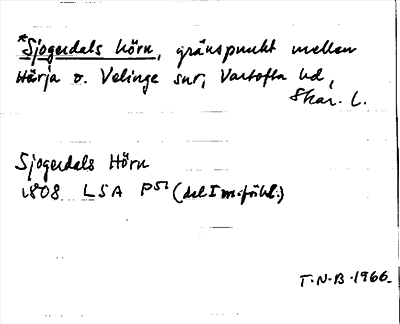 *Sjogerdals hörn, gränspunkt mellan
Härja o. Velinge snr, Vartofta hd,
Skar. l.
Sjogerdals Hörn
1808 LSA P51 (del I m. förhl.)
T.N.B. 1966